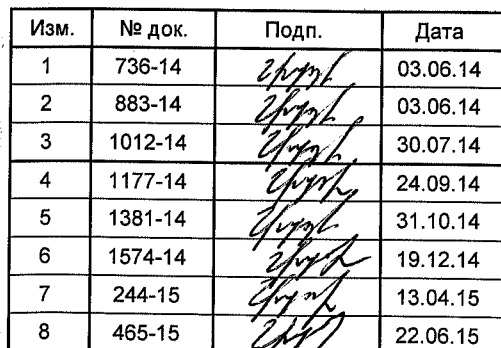 Изм. № док. Подп. Дата
1 736-14 03.06.14
2 883-14 03.06.14
3 1012-14 30.07.14
4 1177-14 24.09.14
5 1381-14 31.10.14
6 1574-14 19.12.14
7 244-15 13.04.15
8 465-15 22.06.15